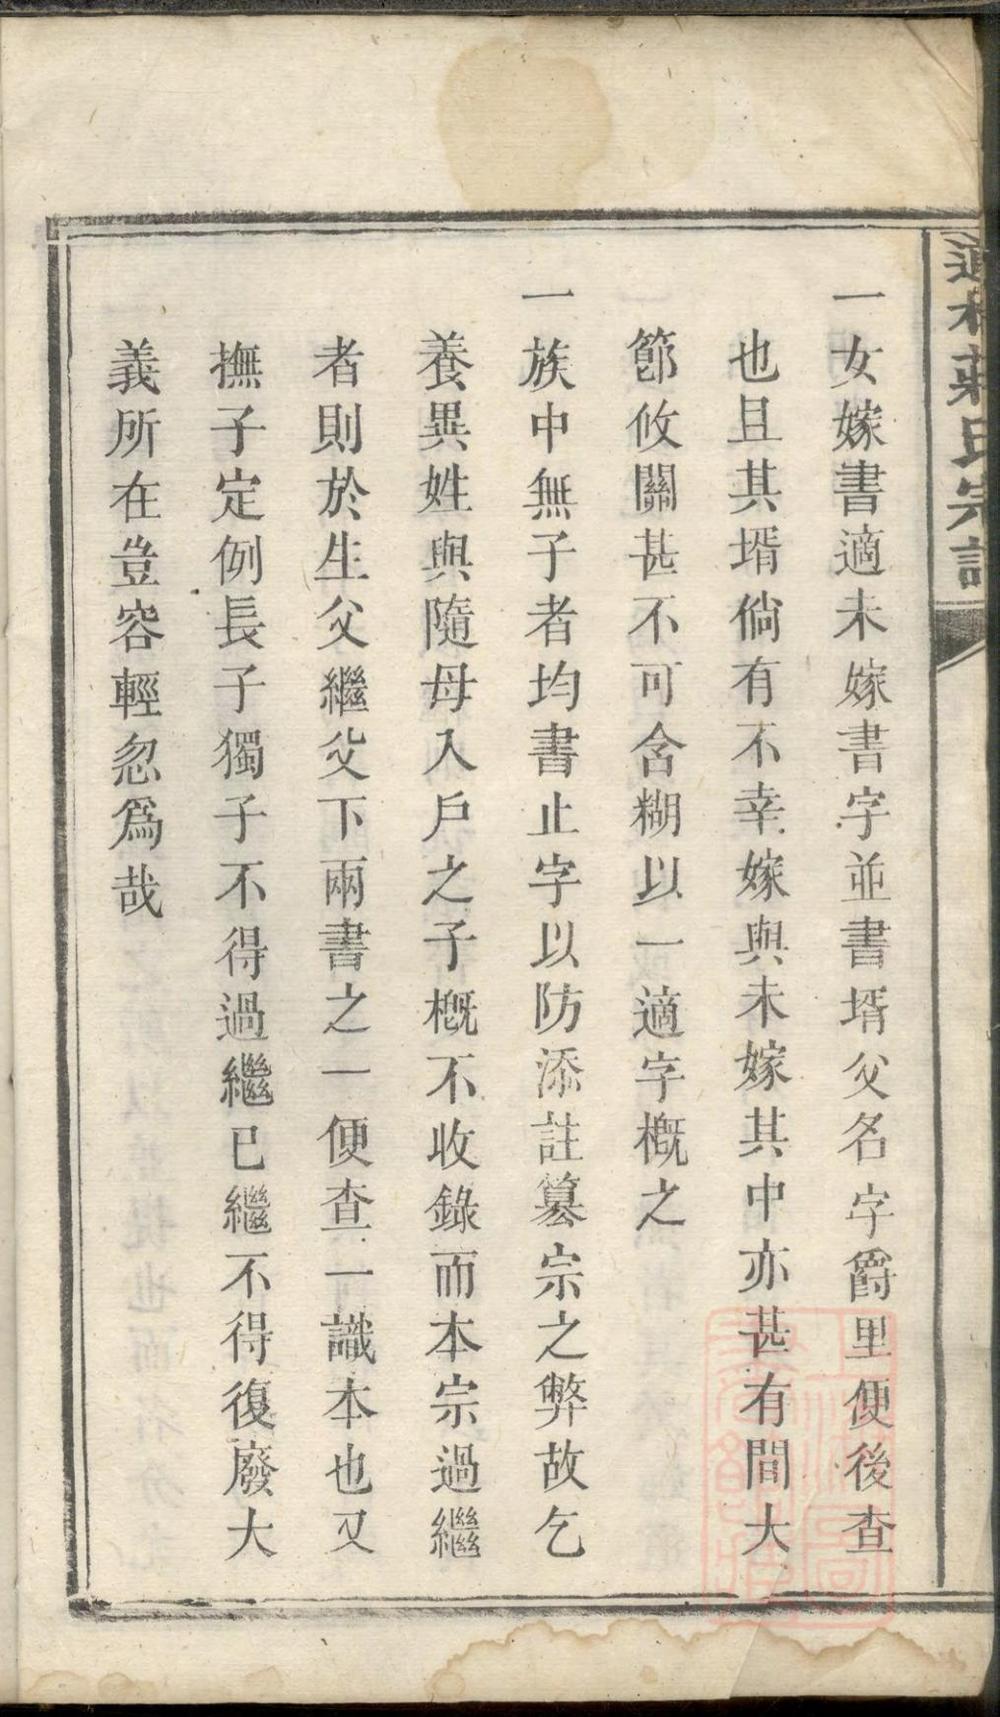 莊氏宗譜
一女嫁書適未嫁書字並書壻父名字爵里便後查
也且其壻倘有不幸嫁與未嫁其中亦甚有間大
節攸關甚不可含糊以一適字概之
一族中無子者均書止字以防添註篡宗之弊故乞
養異姓與隨母入戶之子概不收錄而本宗過繼
者則於生父繼父下兩書之一便查一識本也又
撫子定例長子獨子不得過繼已繼不得復廢大
義所在豈容輕忽爲哉